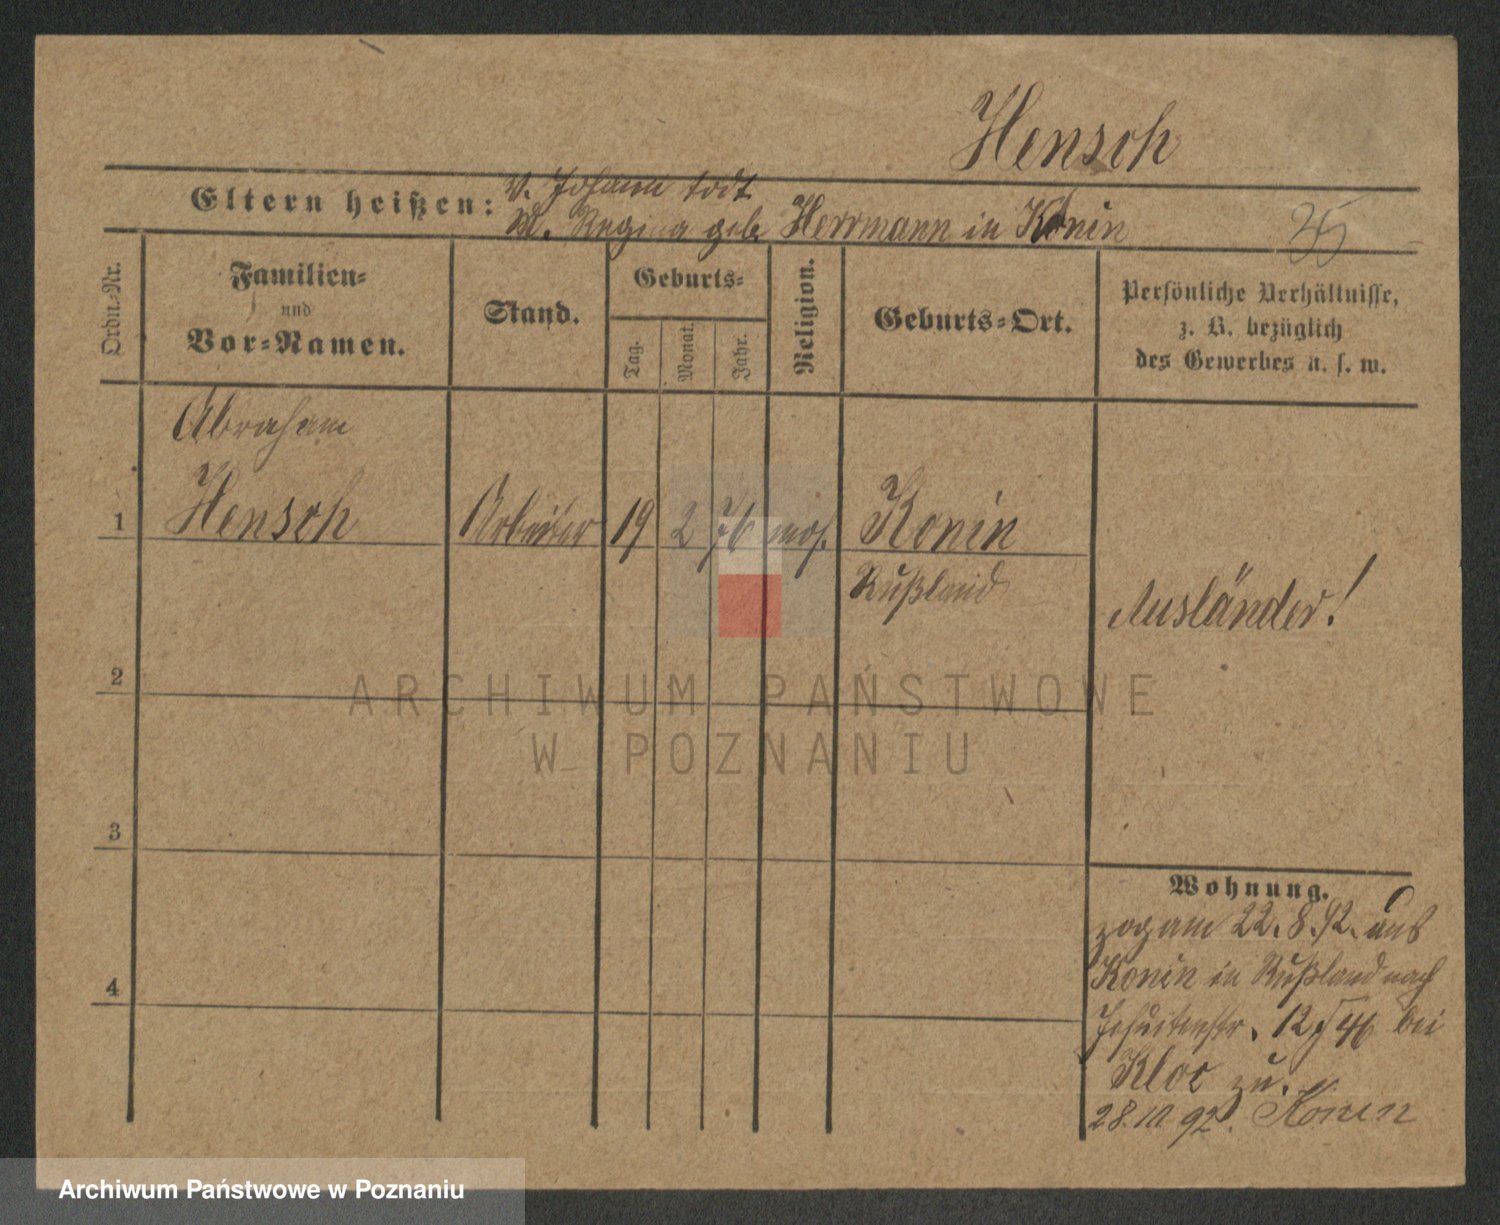 Hensch
Eltern heißen:
V. Johann todt
M. Regina geb. Herrmann in Konin
35
Ordn.=Nr.
Familien=
und
Vor=Namen.
Stand.
Geburts=
Tag.
Monat.
Jahr.
Religion.
Geburts=Ort.
Persönliche Verhältnisse,
z. B. bezüglich
des Gewerbes u. s. w.
Abraham
1 Hensch Arbeiter 19 2 76 mos. Konin
Rußland
Ausländer!
2
3
4
Wohnung.
zog am 22. 8. 92. aus
Konin in Rußland nach
Jesuitenstr. 12 bei
Kloc zu.
28. 10. 92. Konin
ARCHIWUM PAŃSTWOWE
W POZNANIU
Archiwum Państwowe w Poznaniu